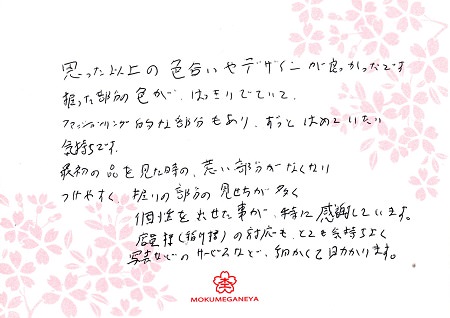 思った以上の色合いやデザインが良かったです
掘った部分の色が、はっきりでていて、
ファッションリング的な部分もあり、ずっとはめていたい
気持ちです。
最初の品を見た時の、荒い部分がなくなり
つけやすく、掘りの部分の見せ方が多く
個性を出せた事が、特に感謝しています。
店員様()の対応も、とても気持ちよく
写真などのサービスなど、細かくて助かります。
MOKUMEGANEYA